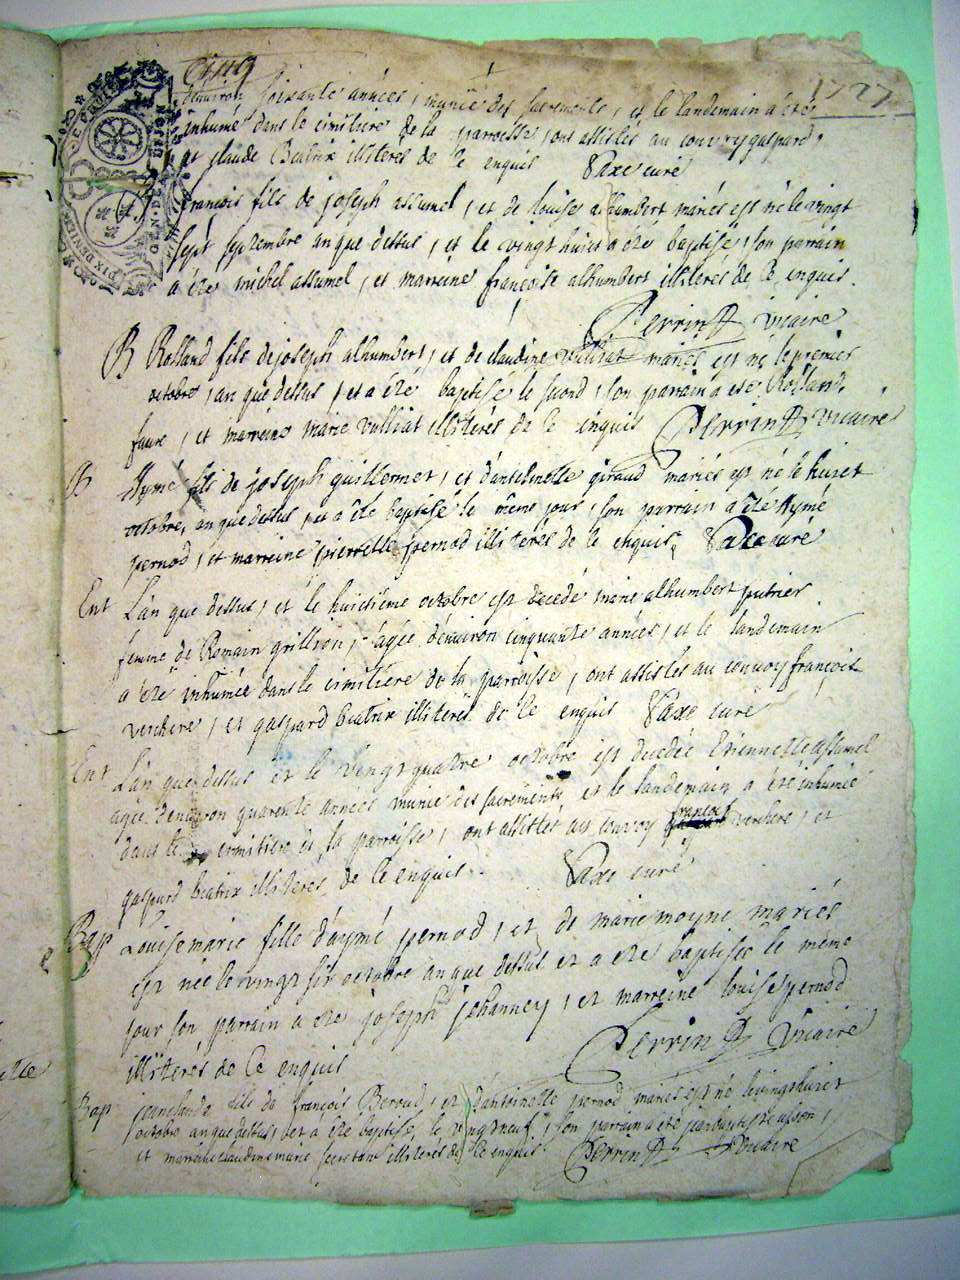 1727
denviron soixante années, munie des sacrements, et le landemain a été
inhumé dans le cimitiere de la parroisse, ont assistes au convoy gaspard,
et claude Beatrix illiterés de ce enquis Vaxe curé
francois fils de joseph assumel, et de louise alhumbert mariés est né le vingt
sept septembre an que dessus, et le vingt huict a été baptisé, son parrain
a été michel assumel, et marreine francoise alhumbert illiterés de ce enquis.
Perrin vicaire
B Rolland fils de joseph alhumbert, et de claudine vulliat mariés est né le premier
octobre, an que dessus, et a été baptisé le second, son parrain a été Rolland
faure, et marreine marie vulliat illiterés de ce enquis Perrin vicaire
B Aymé fils de joseph guillermet, et d'anthelmette giraud mariés est né le huict
octobre, an que dessus, et a été baptisé le même jour, son parrain a été Aymé
pernod, et marreine pierrette pernod illiterés de ce enquis. Vaxe curé
Ent L'an que dessus, et le huictième octobre est decedé marie alhumbert
femme de Romain grillion, agée denviron cinquante années, et le landemain
a été inhumée dans le cimitiere de la parroisse, ont assistes au convoy françois
verchere, et gaspard beatrix illiterés de ce enquis Vaxe curé
Ent L'an que dessus et le vingt quatre octobre est decedée Etiennette assumel
agée denviron quarente années munie des sacrements et le landemain a été inhumée
dans le cimitiere de la parroisse, ont assistes au convoy francois verchere, et
gaspard beatrix illiteres de ce enquis. Vaxe curé
Bap Louise marie fille d'aymé pernod, et de marie moyne mariés
est née le vingt six octobre an que dessus et a été baptisée le même
jour son parrain a été joseph johanney, et marreine louise pernod
illiterés de ce enquis Perrin vicaire
Bap jean claude fils de françois Beroud, et d'antoinette pernod mariés est né le vingt huict
octobre an que dessus, et a été baptisé, le vingt neuf, son parrain a été jean baptiste
et marreine claudine marie secretan illiterés de ce enquis. Perrin vicaire